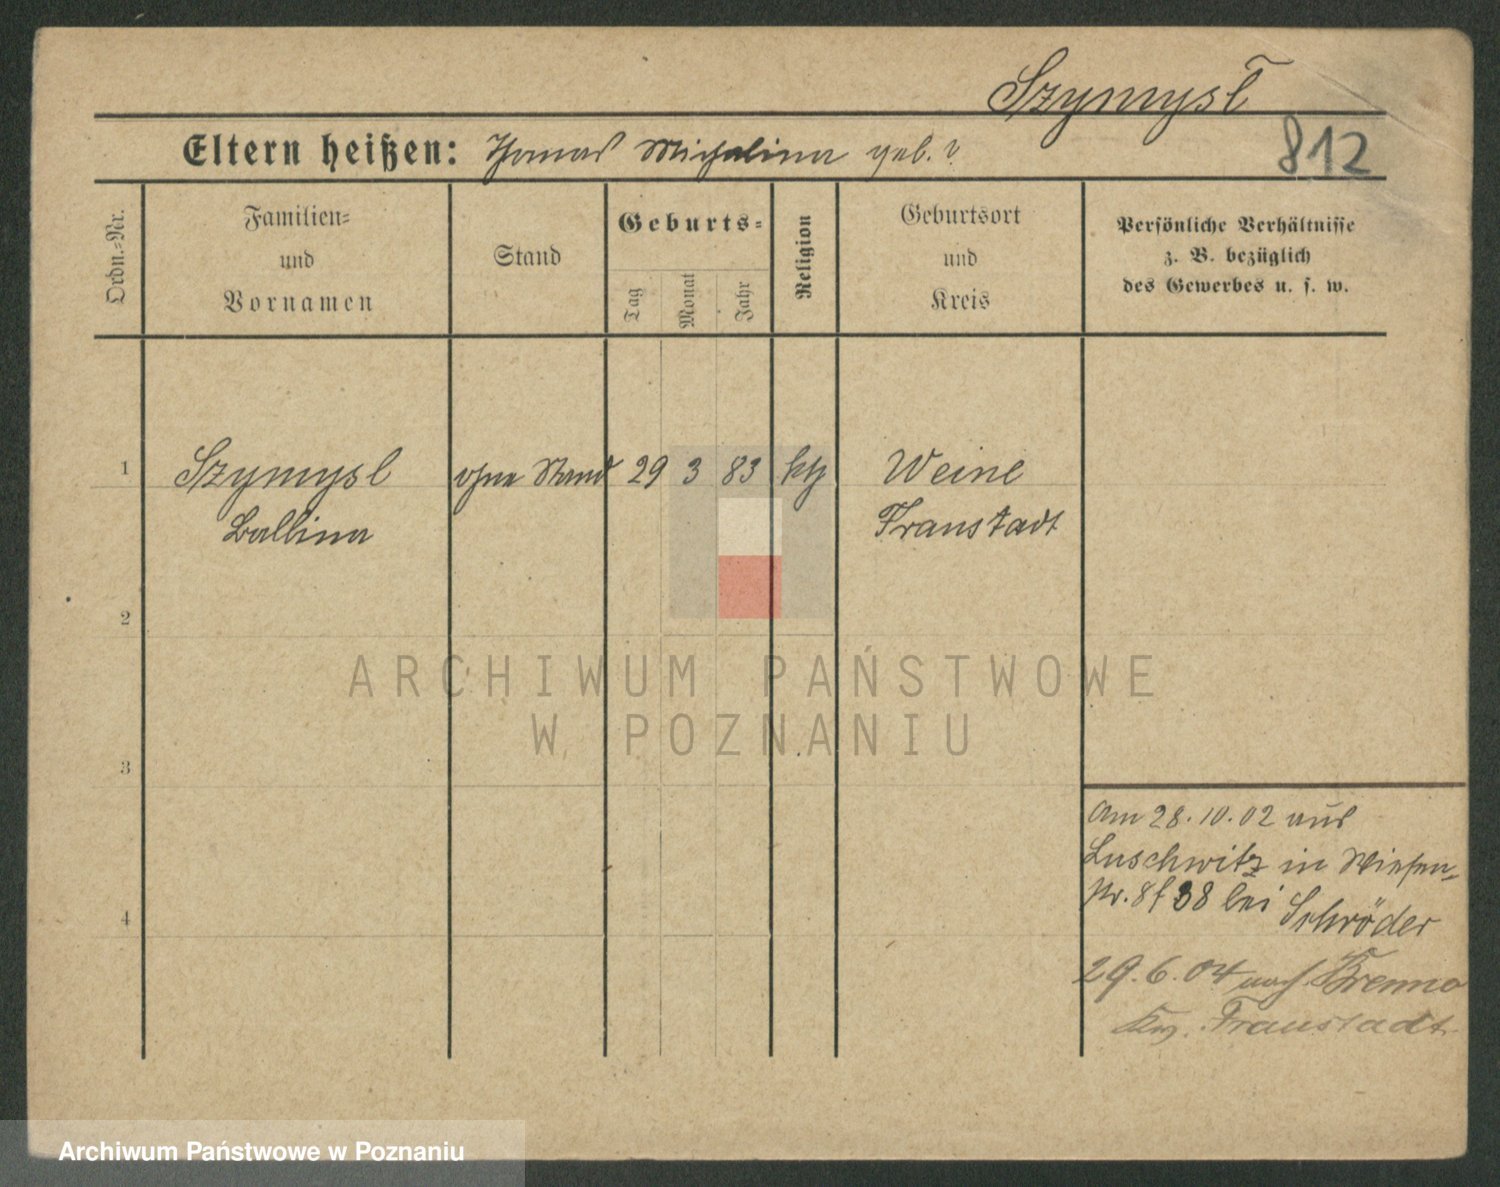 Szymysl
Eltern heißen: Thomas Michalina geb. ?
812
Ordn.=Nr.
Familien=
und
Vornamen
Stand
Geburts=
Tag
Monat
Jahr
Religion
Geburtsort
und
Kreis
Persönliche Verhältnisse
z. B. bezüglich
des Gewerbes u. s. w.
1
Szymysl
Balbina
ohne Stand
29
3
83
kth
Weine
Fraustadt
2
ARCHIWUM PAŃSTWOWE
W POZNANIU
3
Am 28.10.02 aus
Luschwitz in Wiesen-
Nr. 8f38 bei Schröder
4
29.6.04 nach Brenno
Krs. Fraustadt
Archiwum Państwowe w Poznaniu